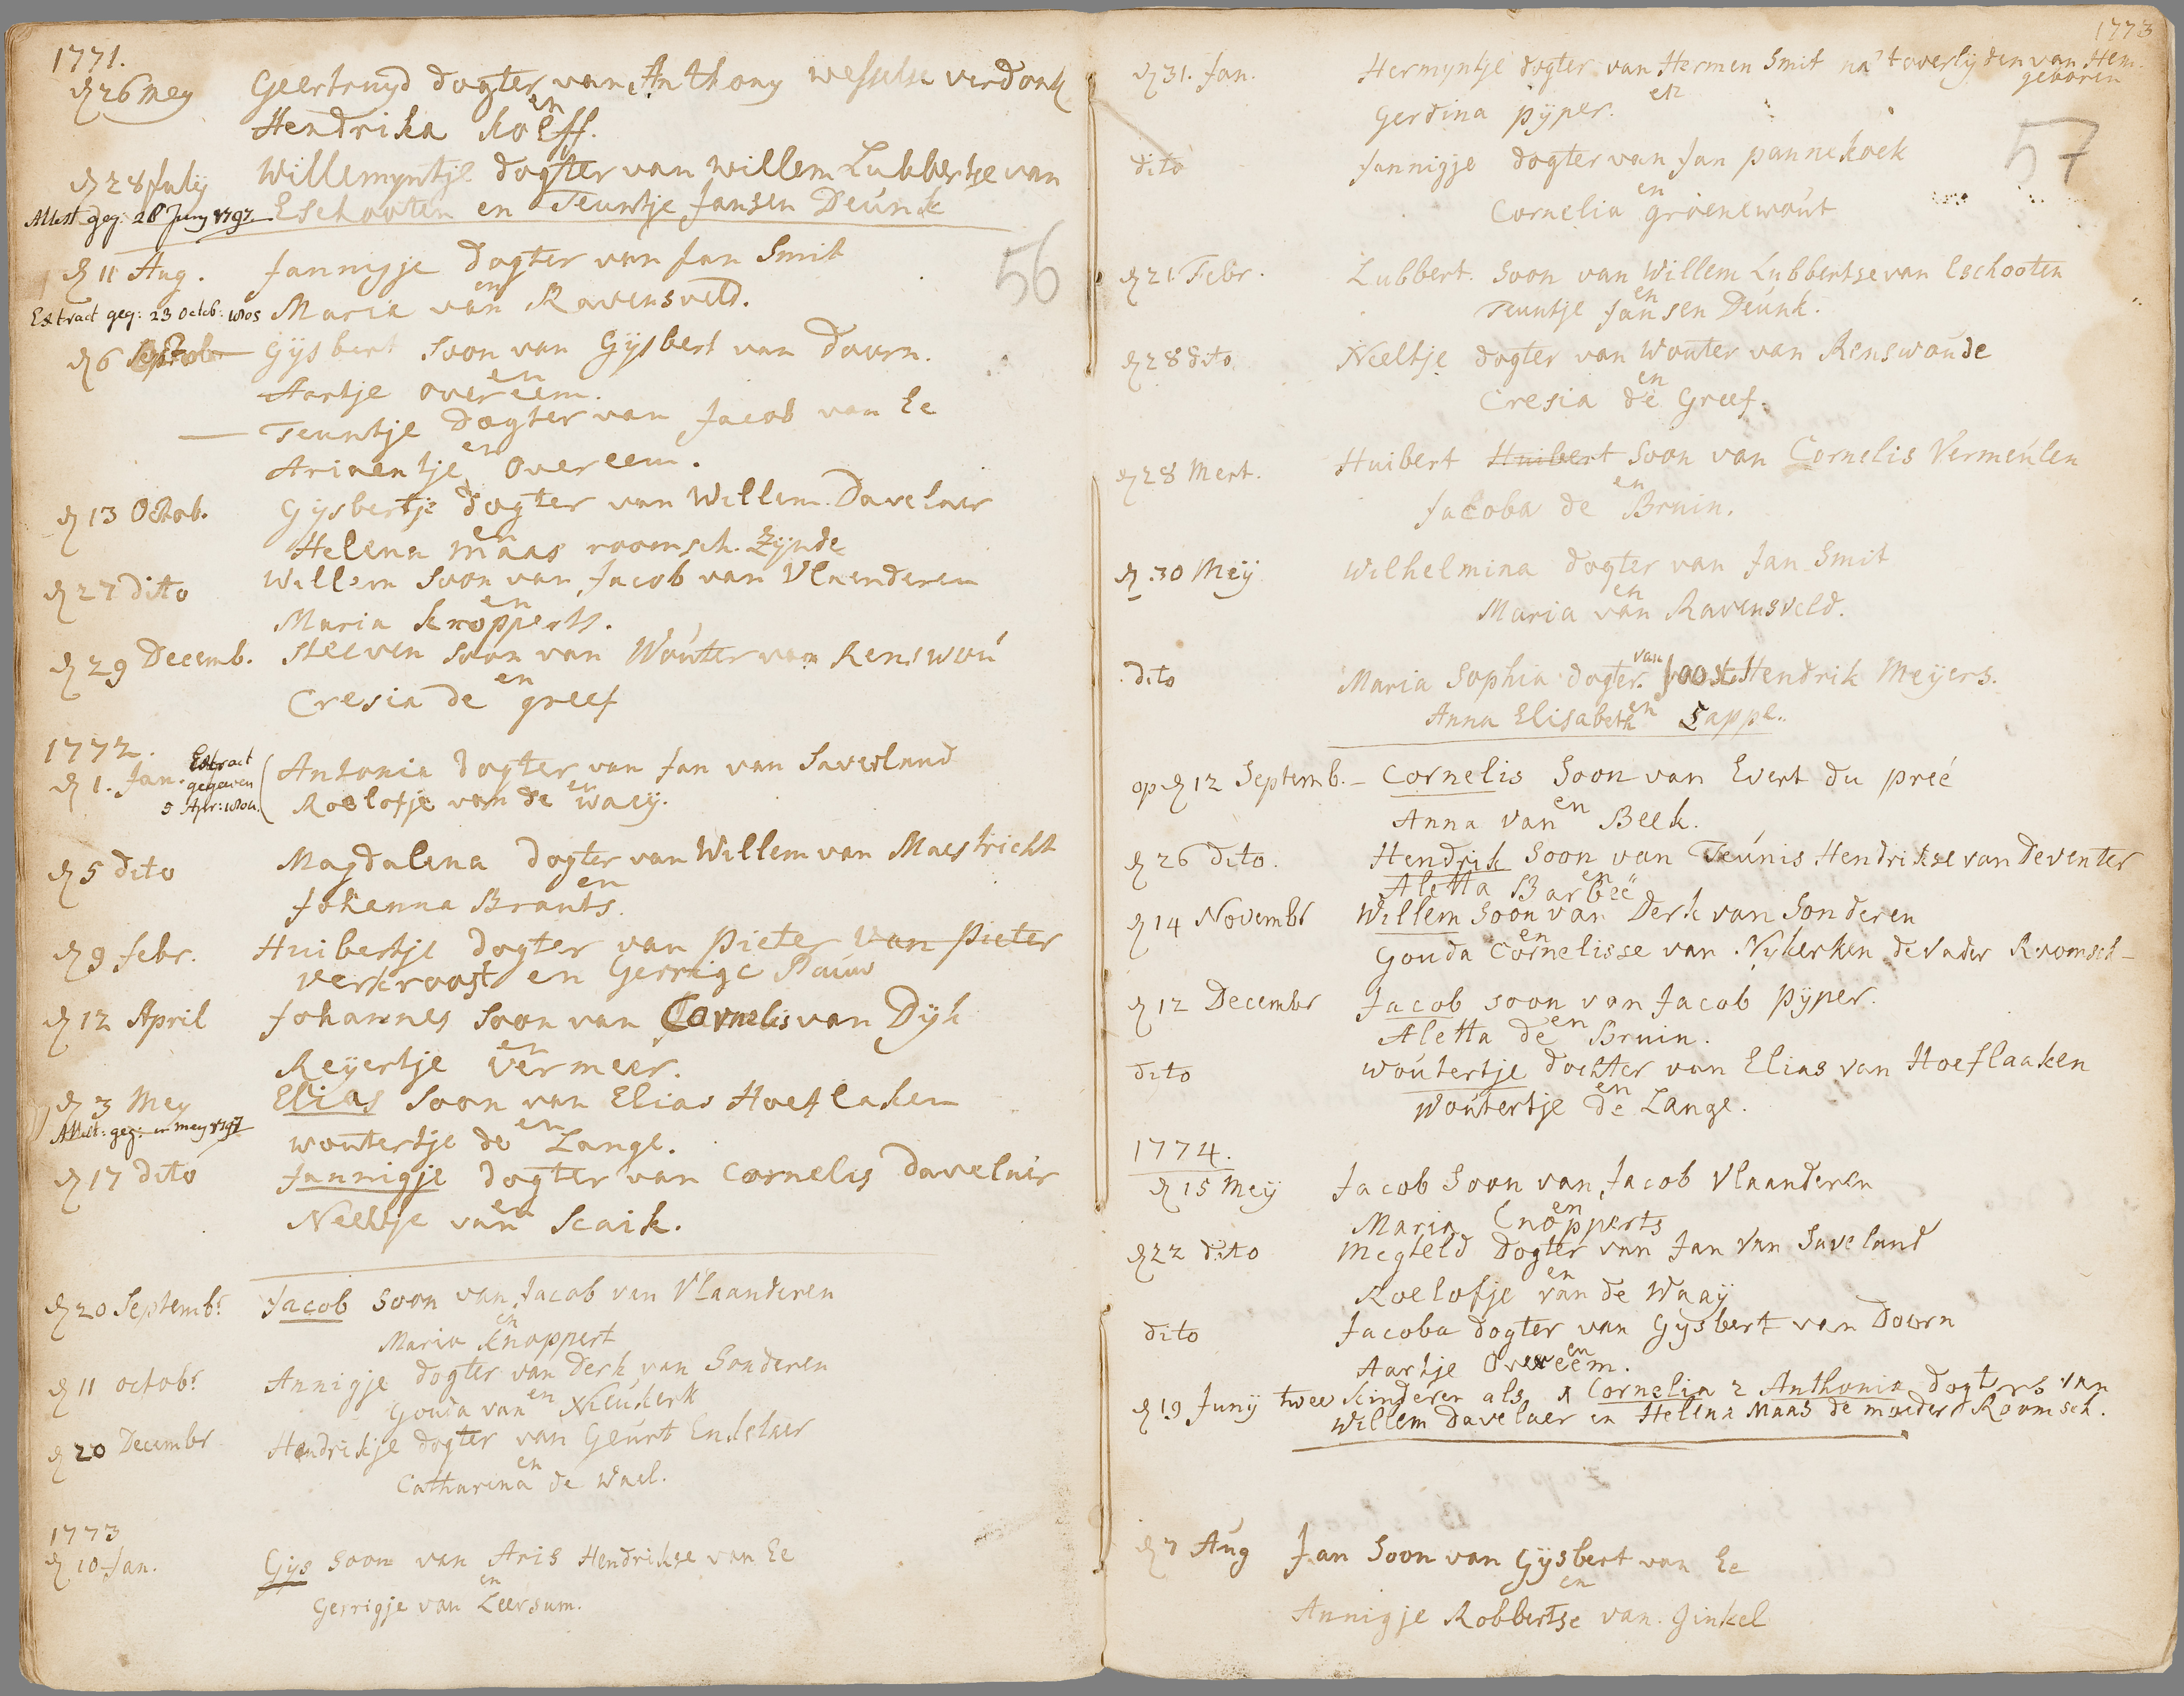 1771.
dn 26 Mey Geertruyd dogter van Anthony Wesselse verdonk
en
Hendrika Roeff.
dn 28 July Willemyntje dogter van Willem Lubbertse van
Attest. geg: 28 Juny 1797 Eschooten en Teuntje Jansen Deunk
56
dn 11 Aug. Jannigje dogter van Jan Smit
en
Extract geg: 23 Octob: 1805 Maria van Ravensveld.
dn 6 Gysbert soon van Gysbert van Doorn.
en
Aartje overeem.
— Teuntje dogter van Jacob van Ee
en
Ariaentje Overeem.
dn 13 Octob. Gysbertje dogter van Willem Davelaer
en
Helena Maas roomsch. Zynde
dn 27 dito Willem soon van Jacob van Vlaenderen
en
Maria knopperts.
dn 29 Decemb. Steeven soon van Wouter van Renswou
en
Cresia de greef
1772.
dn 1. Jan. Extract gegeven 5 Apr: Antonia dogter van Jan van Saverland
en
Roelofje van de waey.
dn 5 dito Magdalena dogter van Willem van Maestricht
en
Johanna Brants.
dn 9 febr. Huibertje dogter van Pieter van Pieter
verkroost en Gerrige Pauw
dn 12 April Johannes soon van Cornelis van Dyk
en
Reyertje vermeer.
dn 3 Mey Elias soon van Elias Hoeflaken
en
Attest: geg: mey 1797 woutertje de Lange.
dn 17 dito Jannigje dogter van Cornelis Davelaer
en
Neeltje van Scaik.
dn 20 Septembr. Jacob soon van Jacob van Vlaanderen
en
Maria knoppert
dn 11 octobr. Annigje dogter van Derk van Sonderen
en
Gouda van Nieukerk
dn 20 Decembr Hendrikje dogter van Geurt Enkelaer
en
Catharina de Wael.
1773
dn 10 Jan. Gys soon van Aris Hendrikse van Ee
en
Gerrigje van Leersum.
1773
dn 31. Jan. Hermyntje dogter van Hermen Smit na 't overlyden van Hem.
geboren
en
Gerdina pyper.
57
dito Jannigje dogter van Jan pannekoek
en
Cornelia groenewout
dn 21 Febr. Lubbert. soon van Willem Lubbertse van Eschooten
en
Teuntje Jansen Deunk.
dn 28 dito. Neeltje dogter van Wouter van Renswoude
en
Cresia de Greef.
dn 28 Mert. Huibert Huibert soon van Cornelis Vermeulen
en
Jacoba de Bruin.
dn 30 Mey Wilhelmina dogter van Jan Smit
en
Maria van Ravensveld.
van
dito Maria Sophia dogter. Joost Hendrik Meyers.
en
Anna Elisabeth Sappe.
op dn 12 Septemb. – Cornelis soon van Evert du preé
en
Anna van Beek.
dn 26 dito. Hendrik soon van Teunis Hendrikse van Deventer
en
Aletta Barbeë
dn 14 Novembr Willem soon van Derk van Sonderen
en
Gouda Cornelisse van Nykerken de Vader Roomsch –
dn 12 Decembr Jacob soon van Jacob pyper.
en
Aletta de Bruin.
dito woutertje dochter van Elias van Hoeflaaken
en
Woutertje de Lange.
1774.
dn 15 Mey Jacob soon van Jacob Vlaanderen
en
Maria Cnopperts
dn 22 dito Megteld dogter van Jan van Saveland
en
Roelofje van de Waay
dito Jacoba dogter van Gysbert van Doorn
en
Aartje Overeem.
dn 19 Juny twee kinderen als 1 Cornelia 2 Anthonia dogters van
Willem Davelaer en Helena Maas de moeder Roomsch.
dn 7 Aug Jan soon van Gysbert van Ee
en
Annigje Robbertse van Ginkel